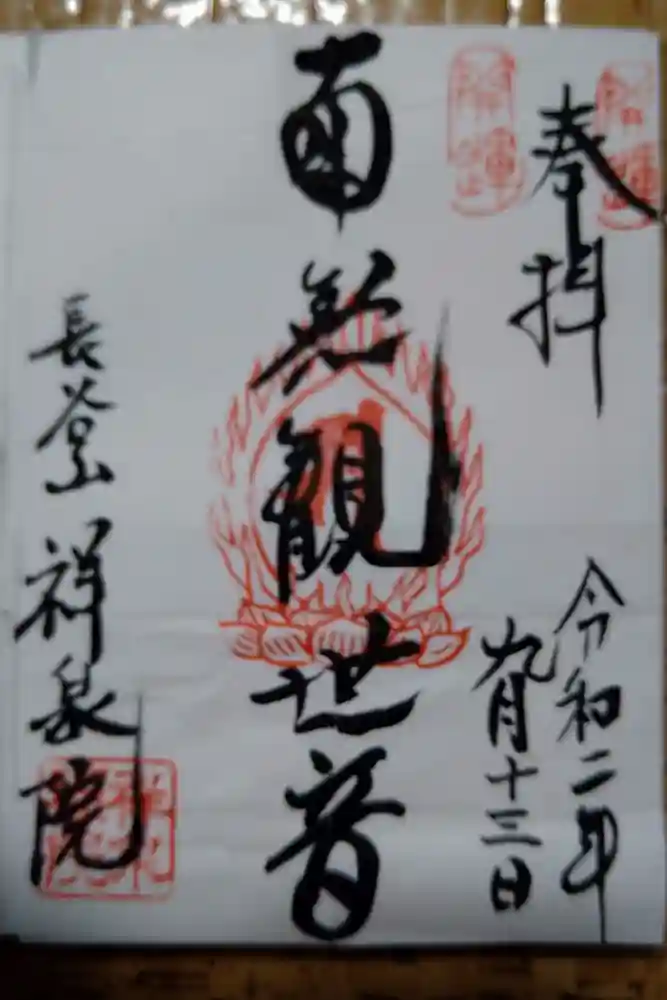 奉拝
令和二年
九月十三日
南無観世音
長谷山
祥泉院